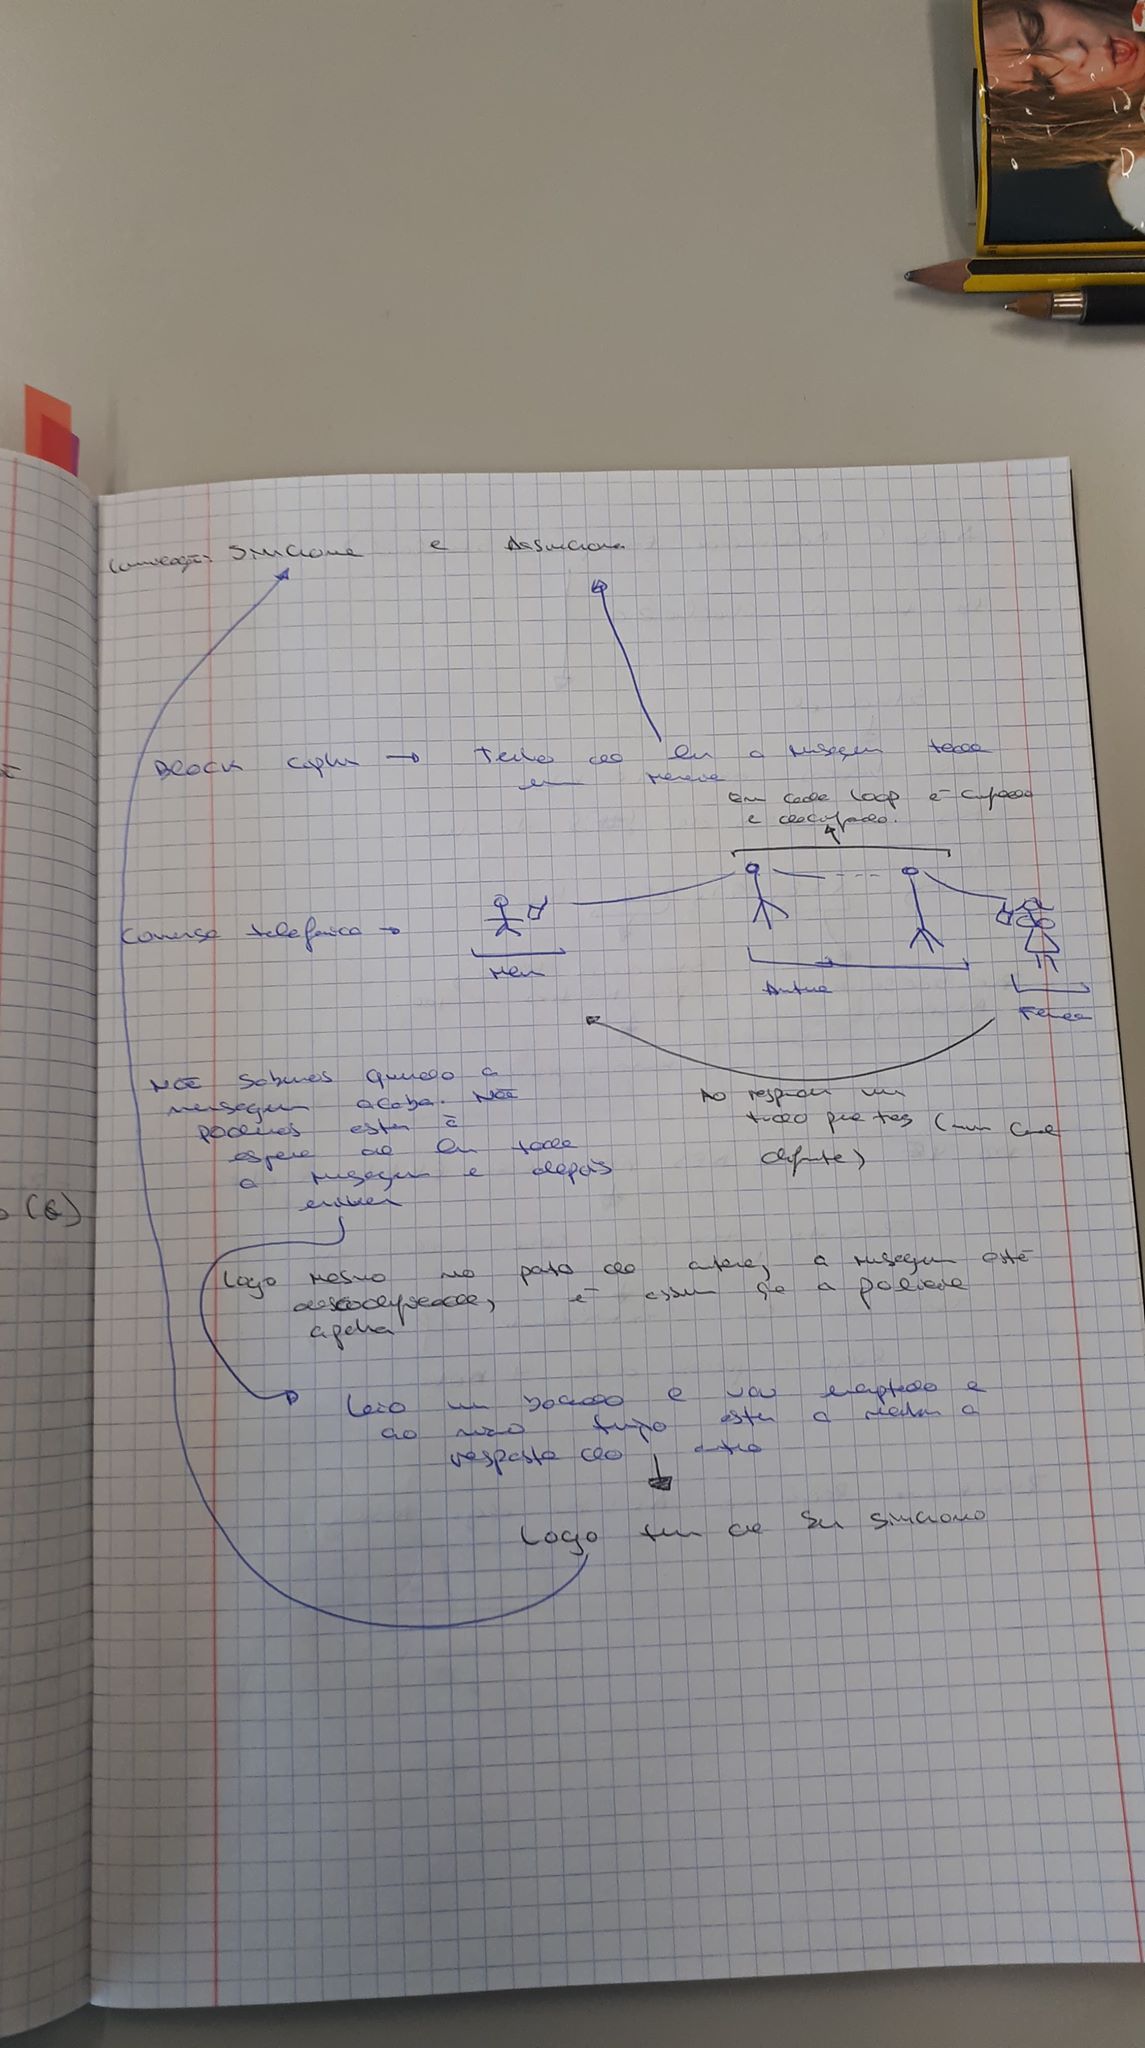 Comunicação Sincrona e Assincrona
Block cipher → Tenho de ler a mensagem toda
em
em cada loop é cifrado
e decifrado.
Conversa telefonica →
Men
Antena
Femea
Não sabemos quando a
mensagem acaba. Não
podemos estar à
espera de ler toda
a mensagem e depois
enviar
Ao responder
tudo para tras (num canal
diferente)
Logo mesmo no ponto de antena, a mensagem está
é assim que a policia
apanha
Leio um bocado e vou encriptando e
ao mesmo tempo estar a receber a
resposta do outro
Logo tem de ser sincrono
(G)